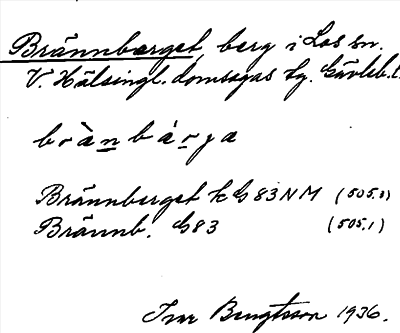 Brännberget, berg i Los sn.
V. Hälsingl. domsagas tg. Gävleb. l.
bràn bárja
Brännberget k G 83 NM (505.3)
Brännb. G 83 (505.1)
Ivar Bengtsson 1936.